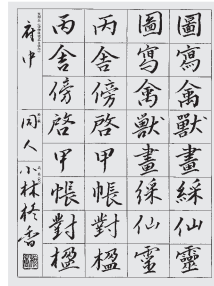 圖寫禽獸畫綵仙靈
圖寫禽獸畫綵仙靈
丙舍傍啓甲帳對楹
丙舍傍啓甲帳對楹
府中 同人 小林香